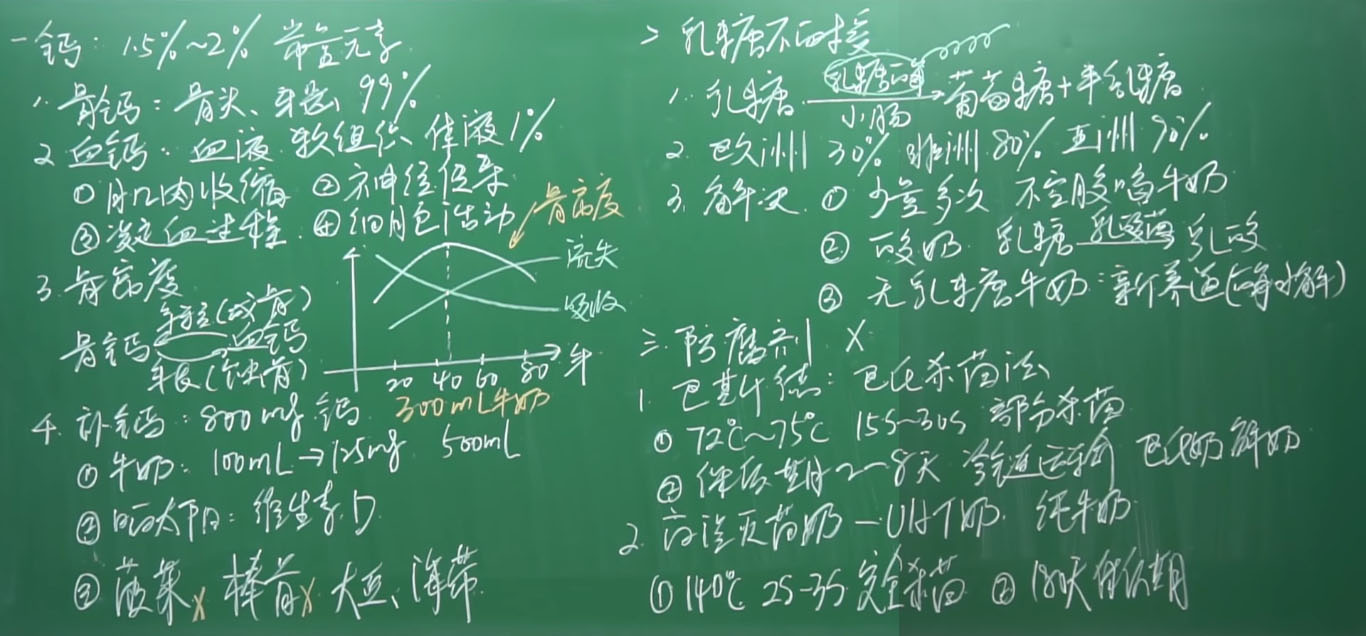 一钙：1.5%~2% 常量元素
1. 骨钙：骨头、牙齿 99%
2. 血钙：血液 软组织 体液 1%
① 肌肉收缩 ② 神经信号
③ 凝血过程 ④ 细胞活动
3. 骨密度
骨钙 血钙
(成骨)
(破骨)
骨密度
流失
吸收
20 40 60 80 年
4. 补钙：800mg 钙
300mL牛奶
500mL
① 牛奶：100mL→125mg
② 晒太阳：维生素D
③ 菠菜x 棒骨x 大豆、海带
二 乳糖不耐接
1. 乳糖 乳糖酶 小肠 葡萄糖+半乳糖
2. 欧洲 30% 非洲 80% 亚洲 90%
3. 解决 ① 少量多次 不空腹喝牛奶
② 酸奶 乳糖 乳酸菌 乳酸
③ 无乳糖牛奶：新养道(酶水解)
三. 防腐剂 X
1. 巴斯德：巴氏杀菌法
① 72℃~75℃ 15s~30s 部分杀菌
② 保质期 2-8天 冷链运输 巴氏奶 鲜奶
2. 高温灭菌奶 — UHT奶 纯牛奶
① 140℃ 2s-3s 完全杀菌 ② 180天保质期